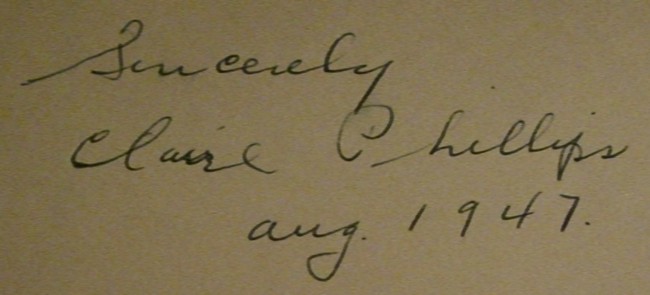 Sincerely
Claire Phillips
aug. 1947.